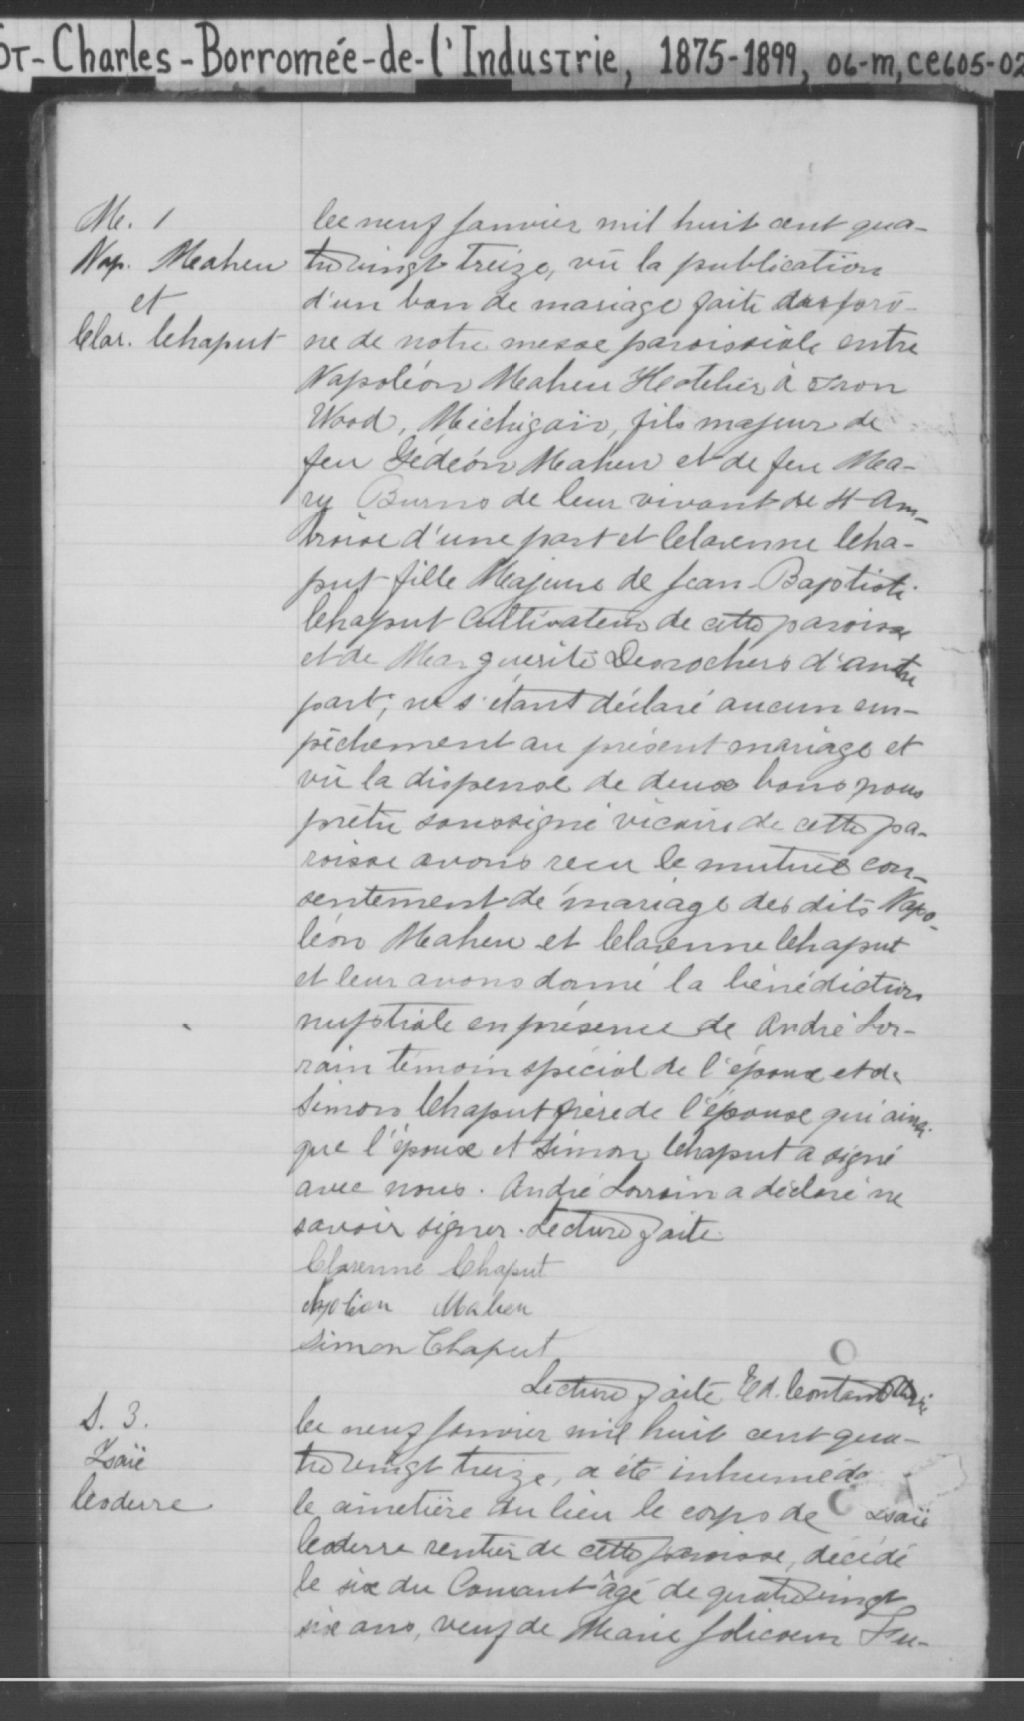 ST-Charles-Borromée-de-l'Industrie, 1875-1899, 06-m, CE605-02
M. 1
Nap. Maheu
et
Clar. Chaput
Ce neuf Janvier mil huit cent qua-
tre vingt treize, vû la publication
d'un ban de mariage faite au prô-
ne de notre messe paroissiale entre
Napoléon Maheu Hotelier à Iron
Wood, Michigan, fils majeur de
feu Gédéon Maheu et de feu Ma-
ry Burns de leur vivant de St Am-
broise d'une part et Clarenne Cha-
put fille Majeure de Jean-Baptiste
Chaput Cultivateur de cette paroisse
et de Marguerite Desrochers d'autre
part; ne s'étant déclaré aucun em-
pêchement au présent mariage et
vû la dispense de deux bans nous
prêtre soussigné vicaire de cette pa-
roisse avons reçu le mutuel con-
sentement de mariage des dits Napo-
léon Maheu et Clarenne Chaput
et leur avons donné la bénédiction
nuptiale en présence de André Lor-
rain témoin spécial de l'époux et de
Simon Chaput frère de l'épouse qui ainsi
que l'époux et Simon Chaput a signé
avec nous. André Lorrain a déclaré ne
savoir signer. Lecture faite
Clarenne Chaput
Napoléon Maheu
Simon Chaput
Lecture faite Ed. Contant Ptre
S. 3.
Isaïe
Desserre
Ce neuf Janvier mil huit cent qua-
tre vingt treize, a été inhumé ds
le cimetière du lieu le corps de Isaïe
rentier de cette paroisse, décédé
le six du Courant âgé de quatre vingt
six ans, veuf de Marie Jolicoeur Fu-